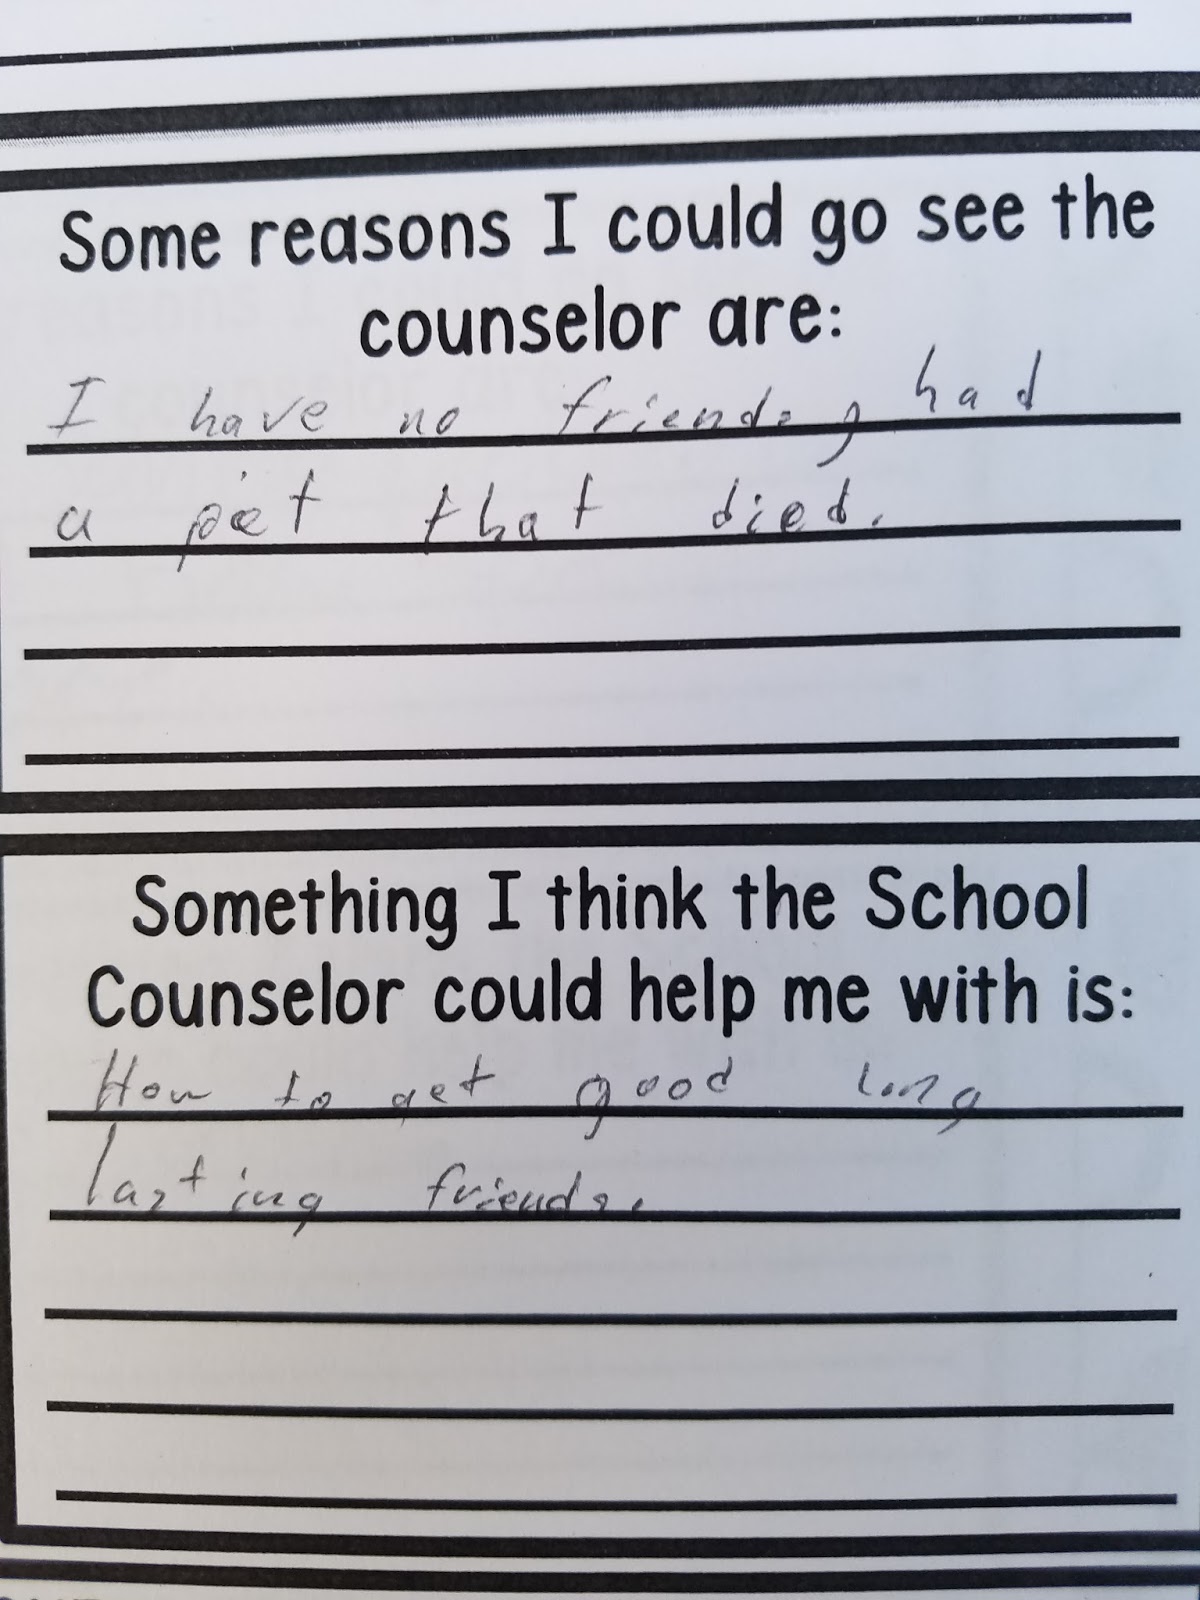 Some reasons I could go see the
counselor are:
I have no friends, had
a pet that died.
Something I think the School
Counselor could help me with is:
How to get good long
lasting friends.